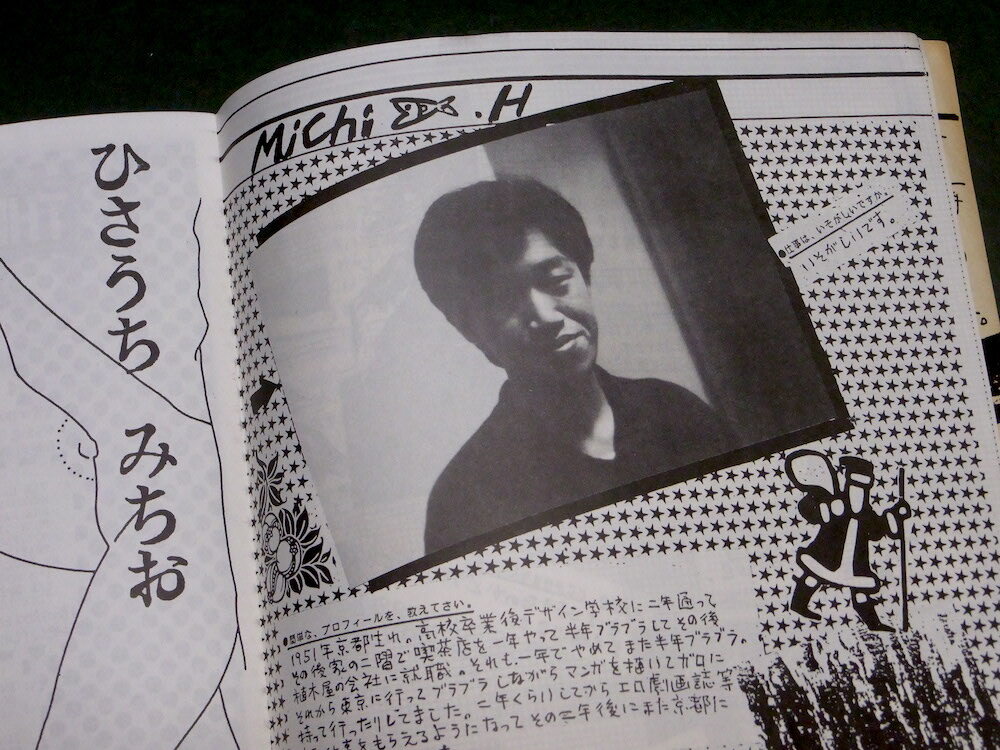 ひさうち みちお
Michi .H
●仕事は、いそがしいですか。
いそがしいです。
●簡単な、プロフィールを、教えてさい。
1951年京都生れ。高校卒業後デザイン学校に二年通って
その後家の二階で喫茶店を一年やって半年ブラブラしてその後
植木屋の会社に就職。それも一年でやめてまた半年ブラブラ。
それから東京に行ってブラブラしながらマンガを描いてガロに
持って行ったりしてました。二年くらいしてからエロ劇画誌等
をもらえるようになってその二年後にまた京都に